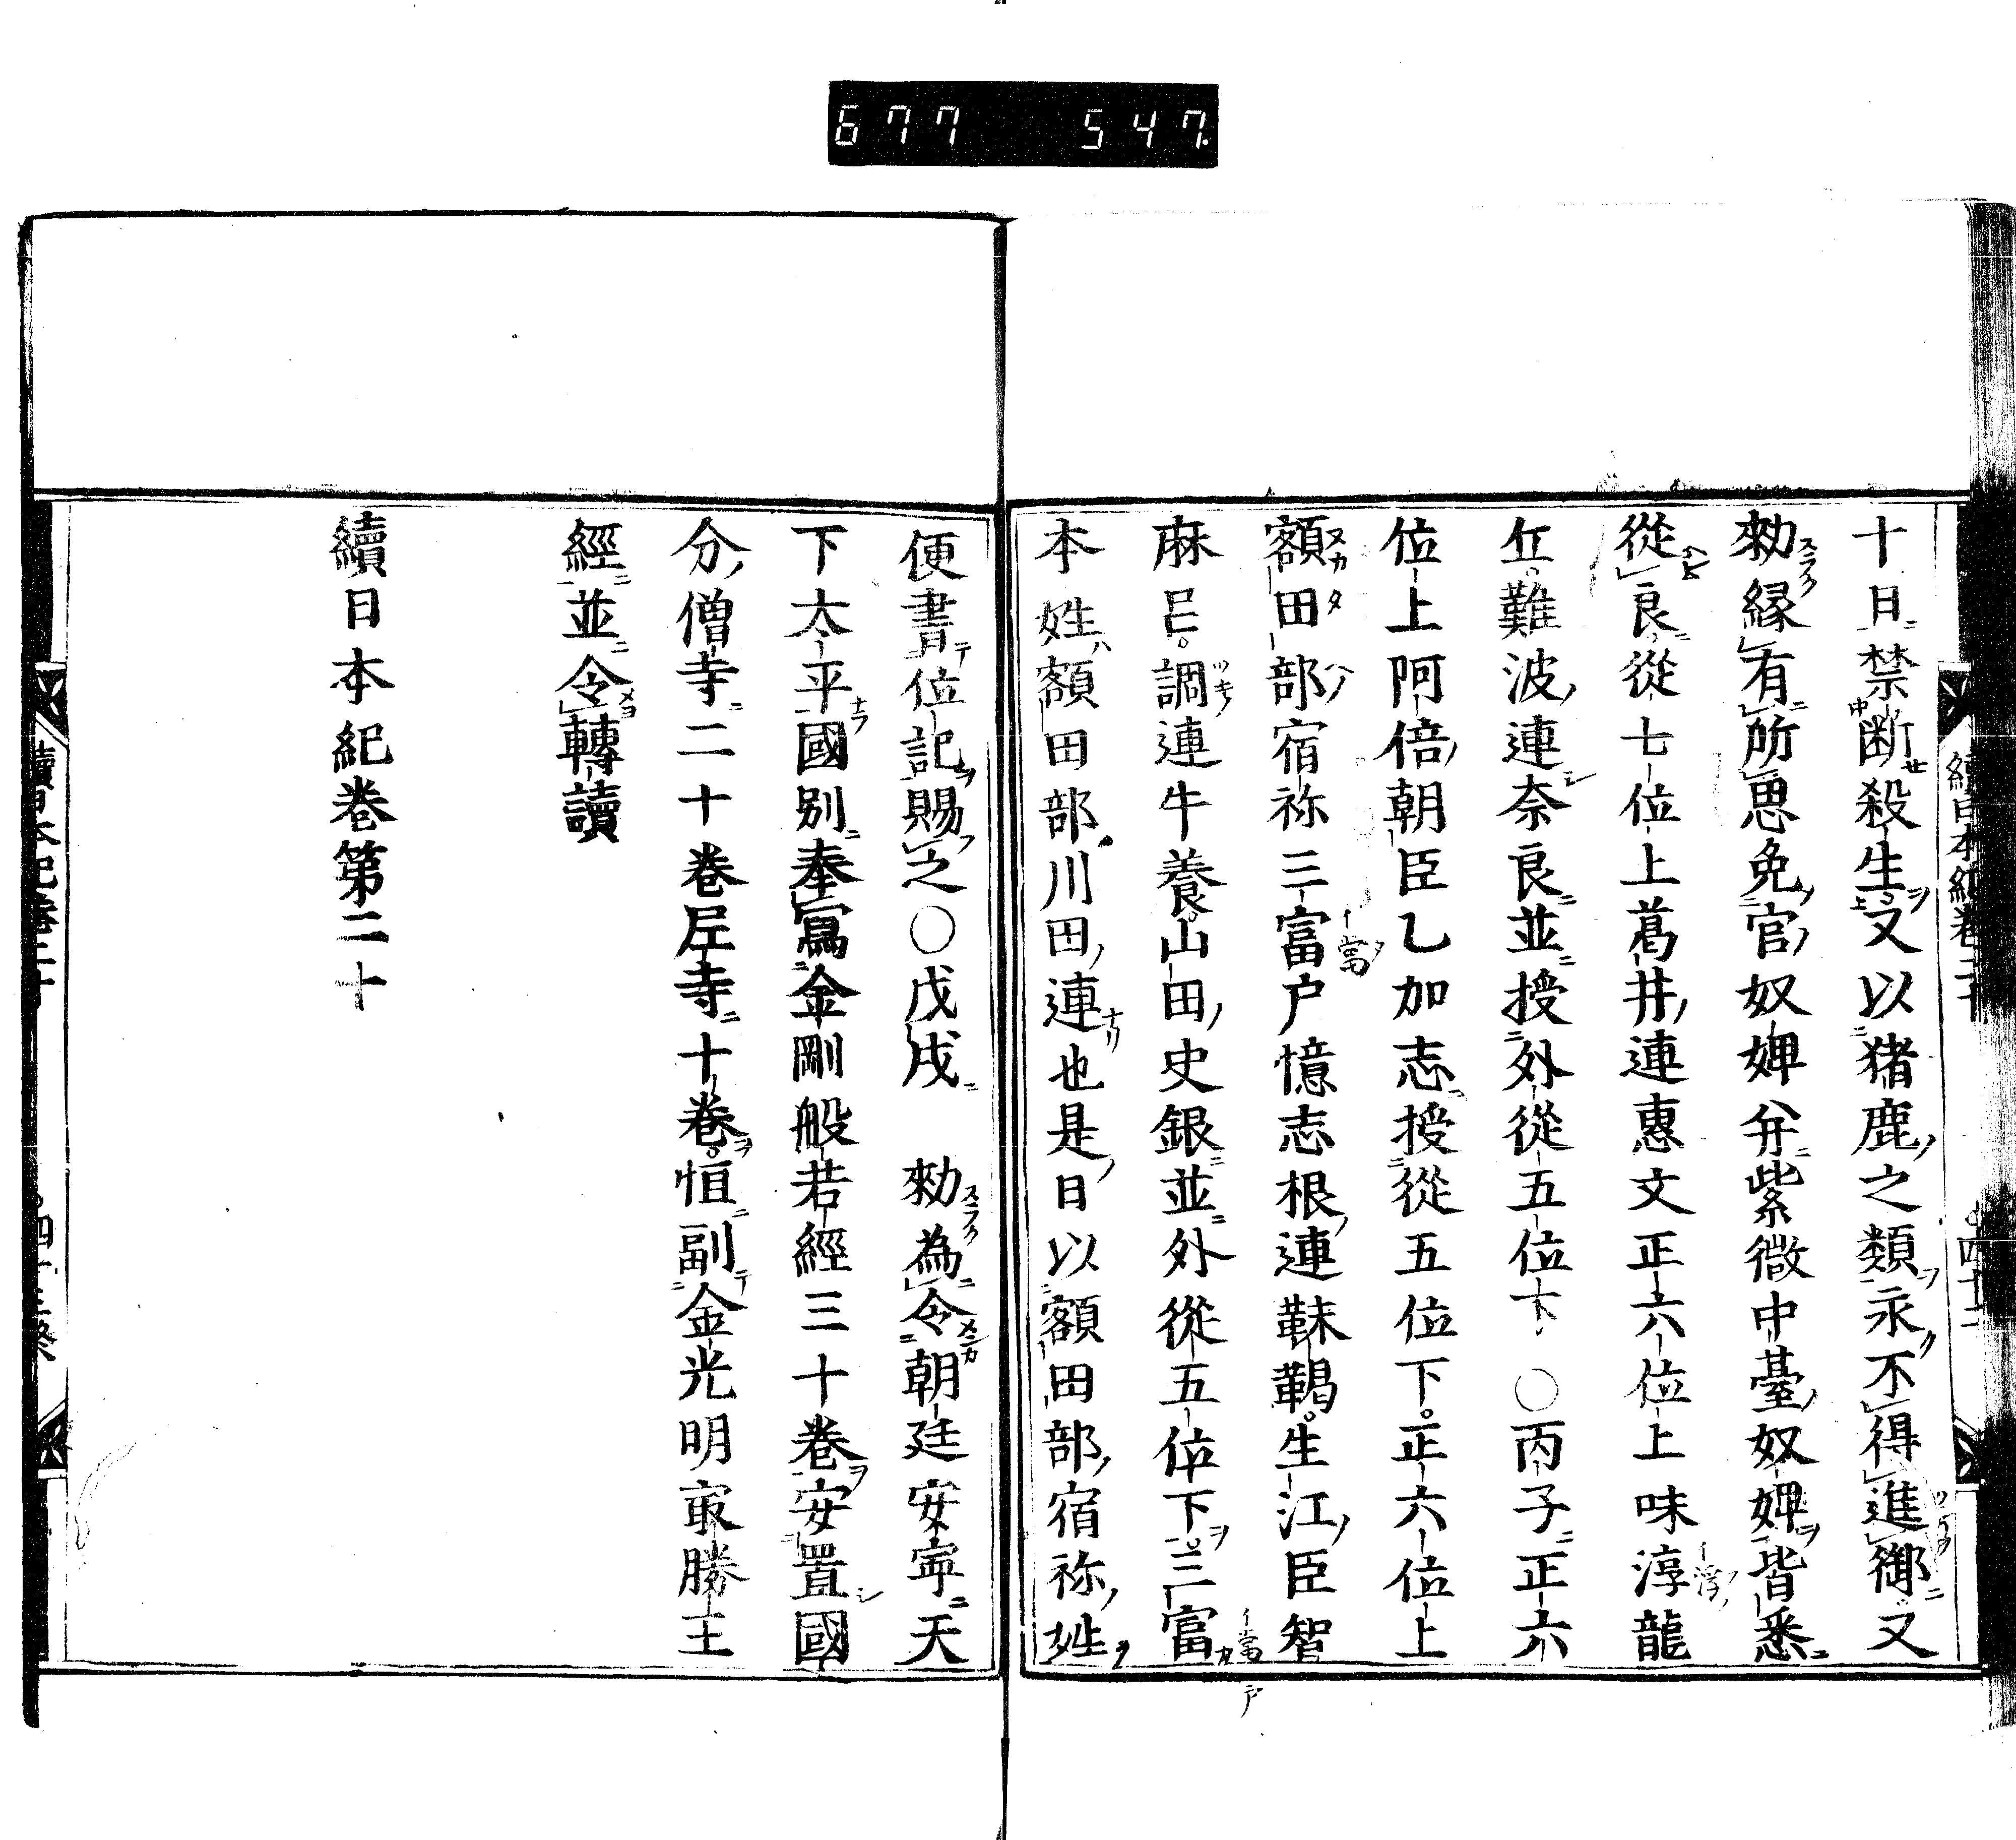 677 547.
十日禁断殺生又以猪鹿之類永不得進御又
勑縁有所思免官奴婢弁紫微中臺奴婢皆悉
從良從七位上葛井連惠文正六位上味淳龍
丘難波連奈良並授外從五位下〇丙子正六
位上阿倍朝臣乙加志授從五位下正六位上
額田部宿祢三富户憶志根連靺鞨生江臣智
麻呂調連牛養山田史銀並外從五位下三富
本姓額田部川田連也是日以額田部宿祢姓
便書位記賜之〇戊戌　勑為令朝廷安寧天
下太平國别奉寫金剛般若經三十卷安置國
分僧寺二十卷尼寺十卷恒副金光明㝡勝王
經並令轉讀
續日本紀卷第二十